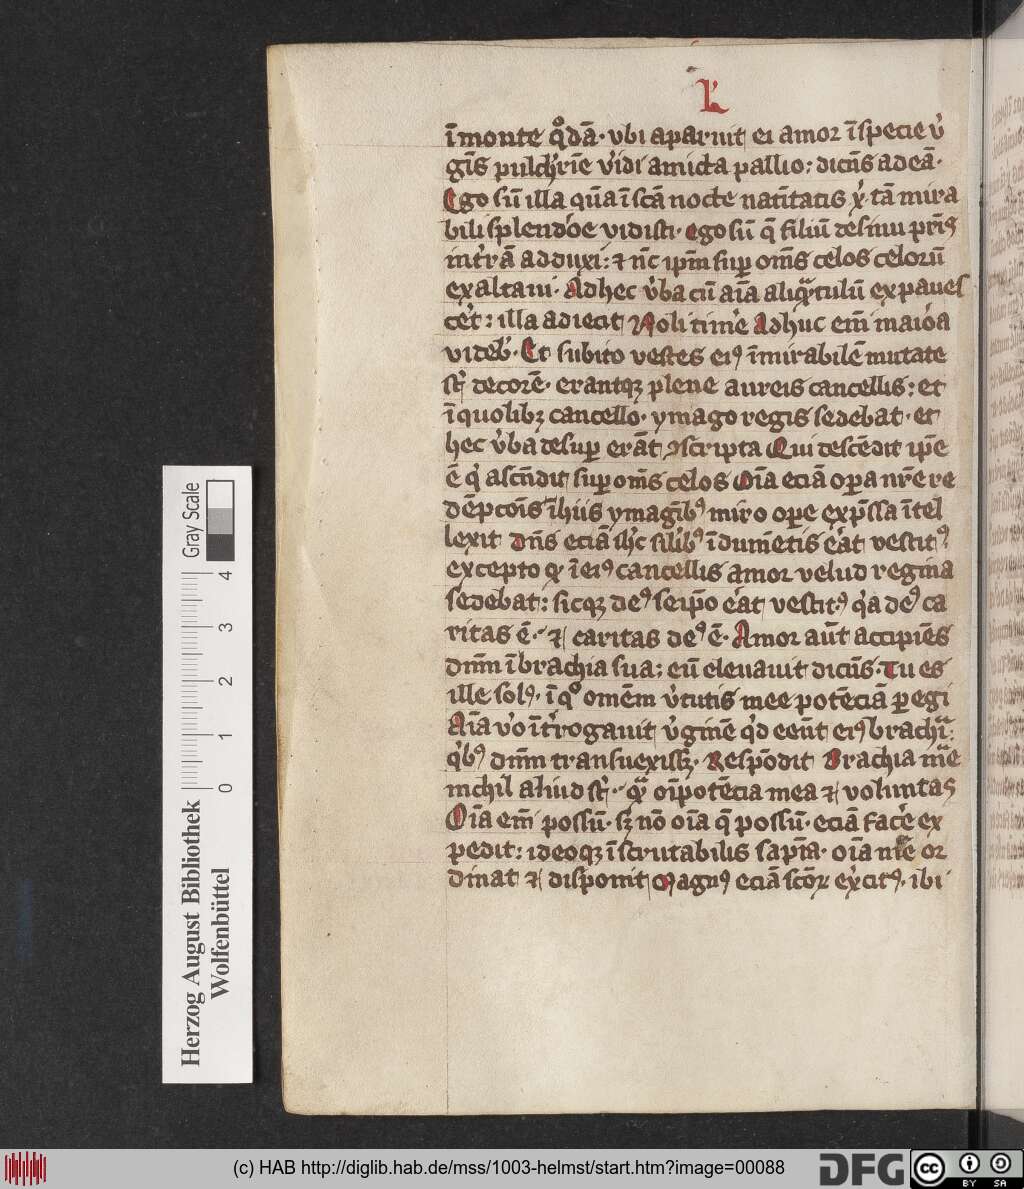 L'
ī monte q̊dā· vbi aparuit ei amor ī specie v̓
gīs pulch̓rīe v̓idi amicta pallio: dicn̄s ad eā·
Ego sū illa quā ī scā nocte natītatis xp̄i tā mira
bili splendo̓e vidisti· ego sū q̄ filiū de sinu pr̄is
in tr̓ā adduxi: ⁊ nc̄ ip̄m suꝑ om̄s celos celorū
exaltaui· Ad hec v̓ba cū aīa aliqᷓtulū expaues
cet̓: illa adiecit Noli tim̓e Adhuc em̄ maio̓a
videb̓· Et subito vestes eiꝰ ī mirabilē mutate
st̄ decorē· erantqꝫ plene aureis cancellis: et
ī quolibꝫ cancello· ymago regis sedebat· et
hec v̓ba desuꝑ erāt ꝯscripta Qui descēdit ip̄e
ē q̇ ascn̄dit suꝑ om̄s celos Oīa eciā oꝑa nr̄e re
dēpcōis ī hiis ymagībꝰ miro oꝑe exp̄ssa ītel
lexit Dn̄s eciā sil̓ībꝰ īdumētis e̓at vestitꝰ
excepto qꝫ ī eiꝰ cancellis amor velud regina
sedebat: sicqꝫ deꝰ seip̄o e̓at vestitꝰ q̇a deꝰ ca
ritas ē· ⁊ caritas deꝰ ē· Amor aūt accipiēs
dn̄m ī brachia sua: eū eleuauit dicn̄s· Tu es
ille solꝰ· ī qͦ omēm v̓tutis mee potēciā ꝑegi
Aīa v̓o īt̓rogauit v̓ginē qd̓ eēnt eiꝰ brachiᷓ:
q̇bꝰ dn̄m transuexissꝫ· Respōdit Brachia mᷓe
nichil aliud st̄· qᷓ oīpotēcia mea ⁊ voluntas
Oīa em̄ possū· sꝫ nō oīa q̄ possū· eciā face̓ ex
pedit: ideoqꝫ īscrutabilis sapīa· oīa mᷓe or
dinat ⁊ disponit Magnꝰ eciā scōꝝ exe̓citꝰ· ibi
Herzog August Bibliothek
Wolfenbüttel
Gray Scale
0 1 2 3 4
(c) HAB http://diglib.hab.de/mss/1003-helmst/start.htm?image=00088
DFG
cc BY SA